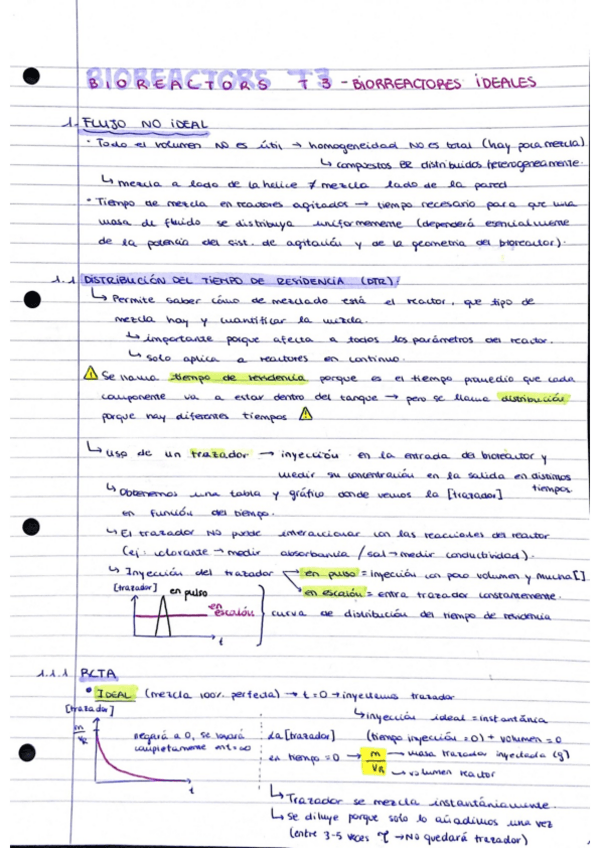 BIOREACTORS T3 - BIORREACTORES IDEALES
1. FLUJO NO IDEAL
· Todo el volumen NO es útil → homogeneidad NO es total (hay poca mezcla)
↳ compuestos BR distribuidos heterogéneamente.
↳ mezcla a lado de la hélice ≠ mezcla lado de la pared
· Tiempo de mezcla en reactores agitados → tiempo necesario para que una
masa de fluido se distribuya uniformemente (dependerá esencialmente
de la potencia del sist. de agitación y de la geometría del bioreactor).
1.1 DISTRIBUCIÓN DEL TIEMPO DE RESIDENCIA (DTR).
↳ Permite saber cómo de mezclado está el reactor, que tipo de
mezcla hay y cuantificar la mezcla.
↳ importante porque afecta a todos los parámetros del reactor.
↳ solo aplica a reactores en continuo.
⚠ Se llama tiempo de residencia porque es el tiempo promedio que cada
componente va a estar dentro del tanque → pero se llama distribución
porque hay diferentes tiempos ⚠
↳ uso de un trazador → inyección en la entrada del bioreactor y
medir su concentración en la salida en distintos
tiempos
↳ Obtenemos una tabla y gráfico donde vemos la [trazador]
en función del tiempo.
↳ El trazador NO puede interaccionar con las reacciones del reactor
(ej: colorante → medir absorbancia / sal → medir conductividad).
↳ Inyección del trazador → en pulso = inyección con poco volumen y mucha [].
→ en escalón = entra trazador constantemente.
[trazador] en pulso
en escalón
curva de distribución del tiempo de residencia
t
1.1.1 RCTA
• IDEAL (mezcla 100% perfecta) → t = 0 → inyectamos trazador
[trazador]
↳ inyección ideal = instantánea
(tiempo inyección = 0) + volumen = 0
m/VR
llegará a 0, se lavará
completamente en t = ∞
t
La [trazador]
en tiempo = 0 → m/VR → masa trazador inyectada (g)
→ volumen reactor
↳ Trazador se mezcla instantáneamente.
↳ Se diluye porque solo lo añadimos una vez
(entre 3-5 veces τ → NO quedará trazador)